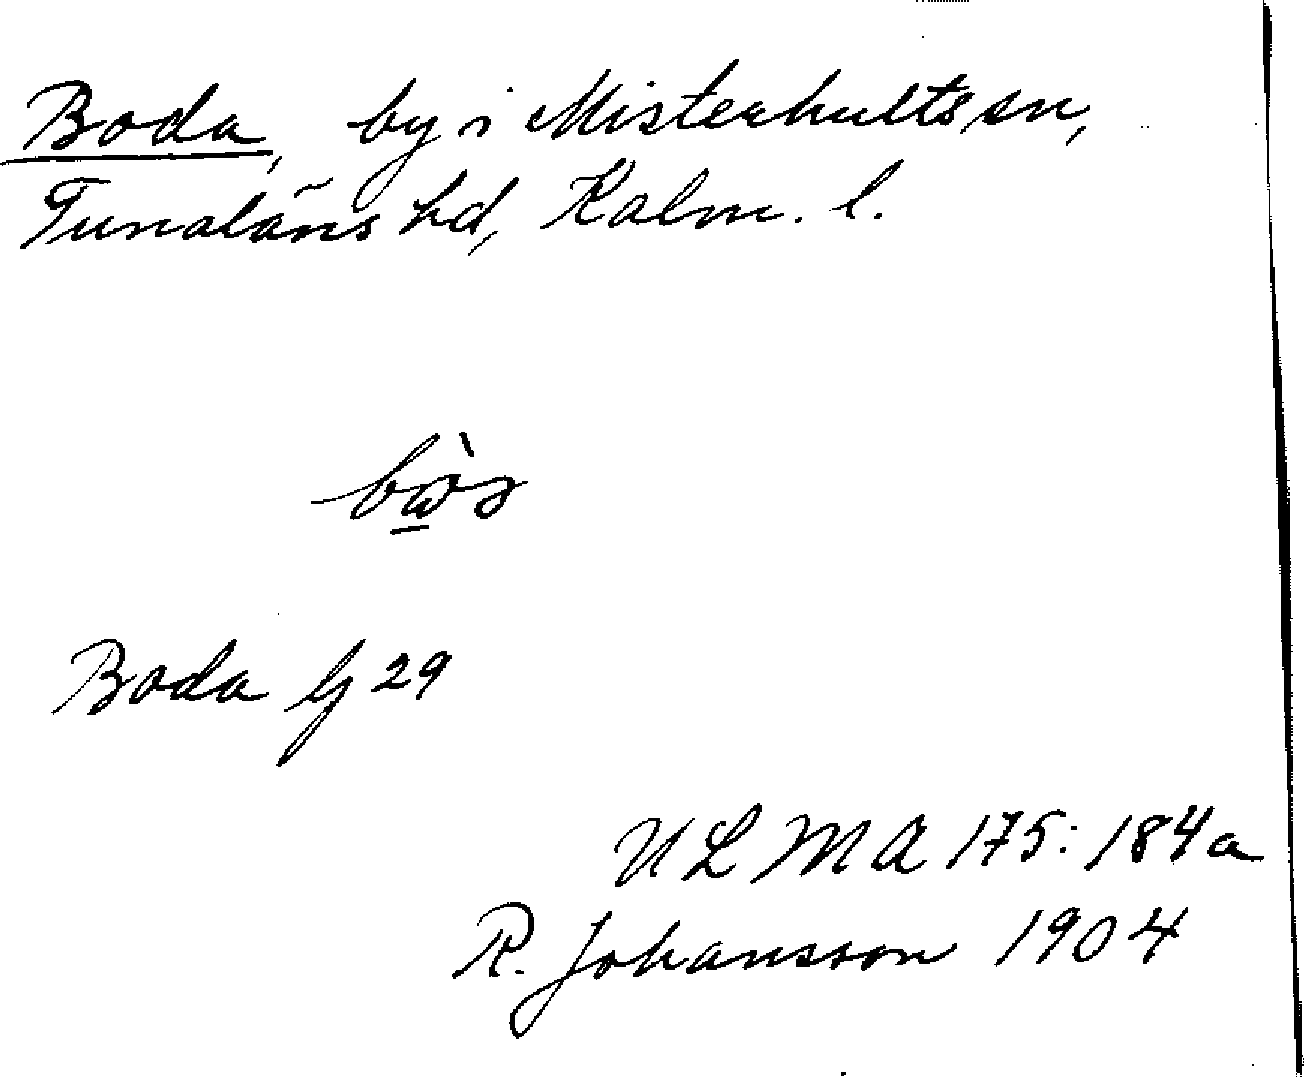 Boda, by i Misterhults sn,
Tunaläns hd, Kalm. l.
Boda Gj 29
ULMA 175:184a
R. Johansson 1904